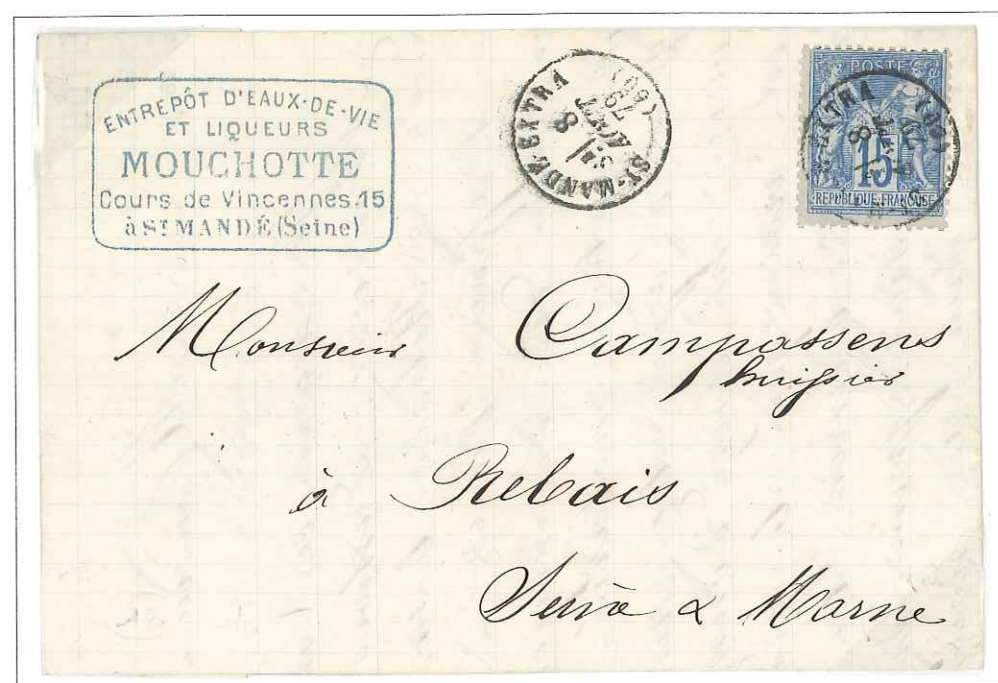 ENTREPÔT D'EAUX-DE-VIE
ET LIQUEURS
MOUCHOTTE
Cours de Vincennes.15
à ST MANDÉ (Seine)
ST-MANDÉ EXTRA
8
AOUT
79
(60)
POSTE
15
REPUBLIQUE FRANÇAISE
EXTRA
8
79
(60)
Monsieur Campassens
huissier
à Rebais
Seine & Marne